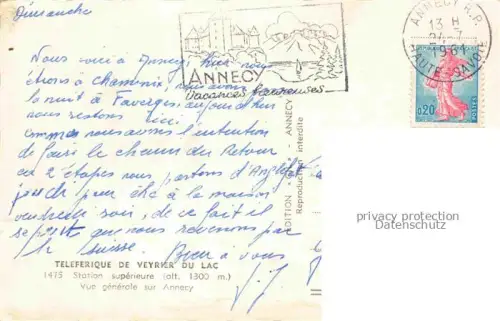 Dimanche
Nous voici à Annecy, hier nous
étions à Chamonix, nous avons
la nuit à Faverges aujourd'hui
nous restons ici
comme nous avons l'intention
de faire le chemin du Retour
en 2 étapes nous partons d'An
jeudi pour être à la maison
vendredi soir, de ce fait il
se peut que nous revenons par
la Suisse. Bien à vous
TELEFERIQUE DE VEYRIER DU LAC
1475 Station supérieure (alt. 1300 m.)
Vue générale sur Annecy
EDITION ANNECY
Reproduction interdite
ANNECY
Vacances heureuses
ANNECY R.P.
13 H
-7
1961
HAUTE-SAVOIE
0,20
POSTES
privacy protection
Datenschutz